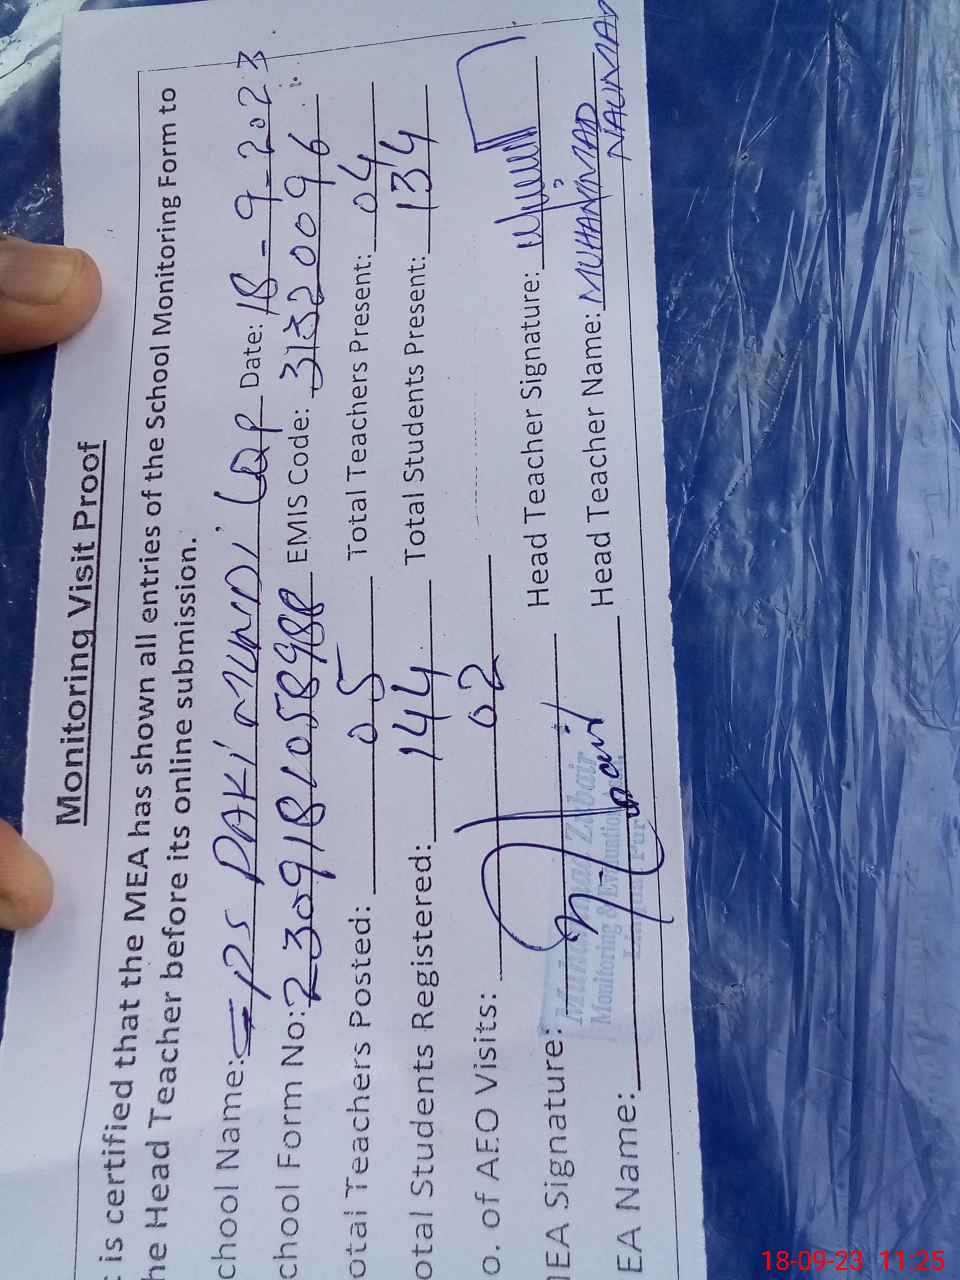 Monitoring Visit Proof
is certified that the MEA has shown all entries of the School Monitoring Form to
he Head Teacher before its online submission.
chool Name: GPS PAKI MUNDI, LQP Date: 18-9-2023
chool Form No: 2309181058988 EMIS Code: 31320096
otal Teachers Posted: 05 Total Teachers Present: 04
otal Students Registered: 144 Total Students Present: 134
o. of AEO Visits: 02
EA Signature: Head Teacher Signature:
EA Name: Head Teacher Name: MUHAMMAD
NAUMAN
Zubair
Monitoring & Evaluation
18-09-23 11:25